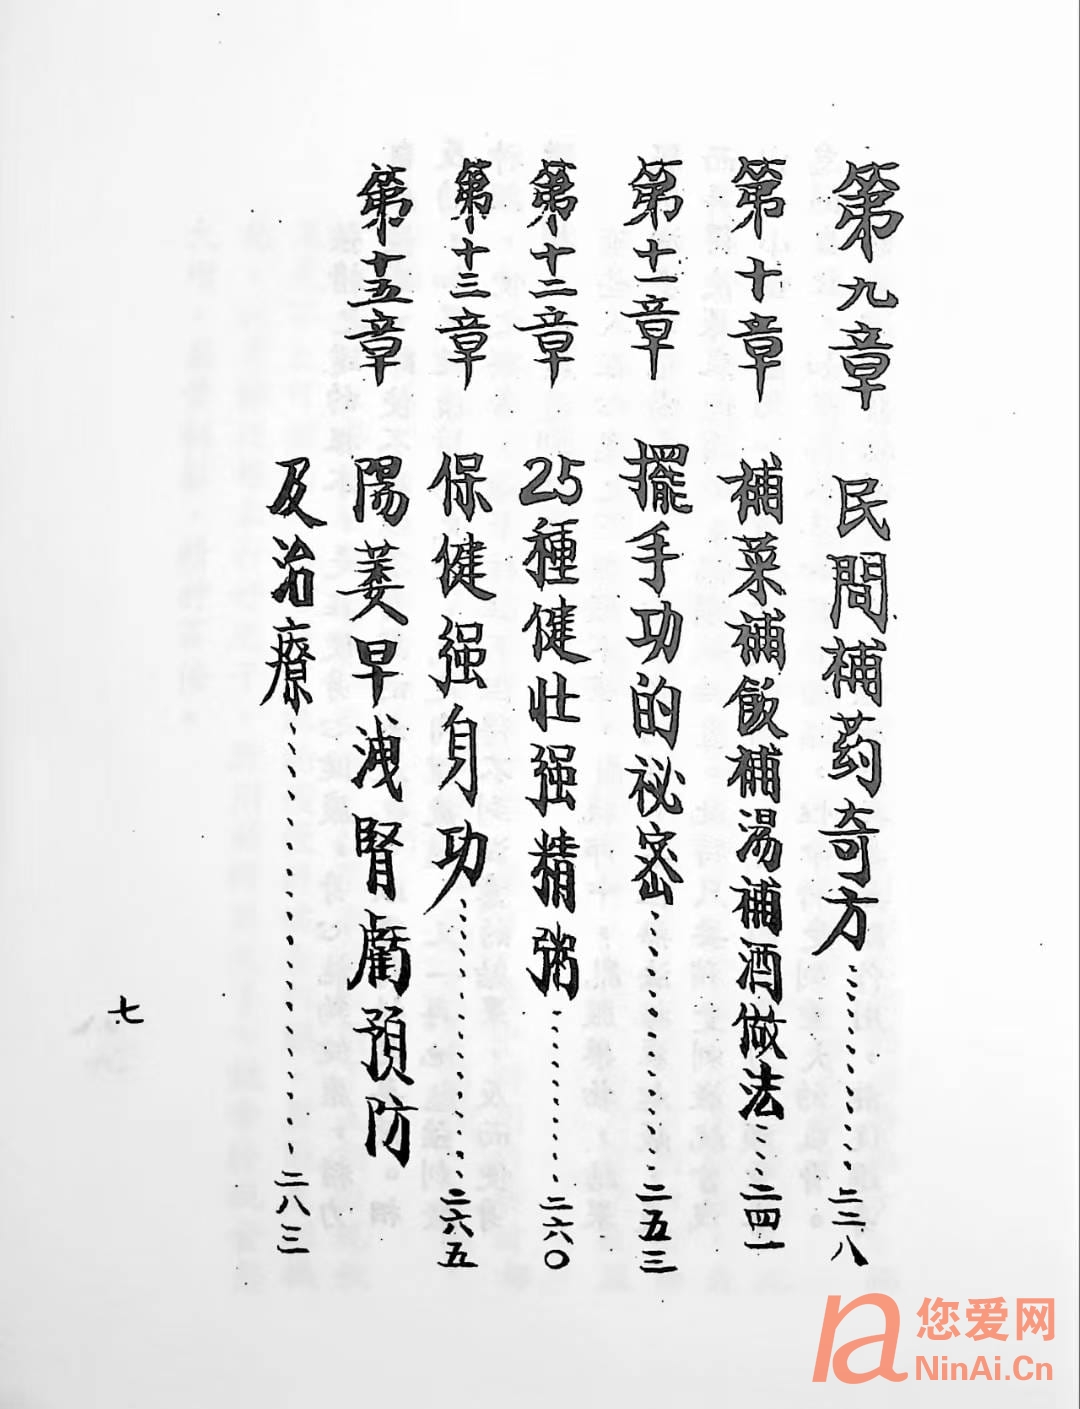 第九章 民間補药奇方…………二二八
第十章 補菜補飯補湯補酒做法……二四一
第十一章 擺手功的祕密…………二五三
第十二章 25種健壮强精粥…………二六〇
第十三章 保健强身功…………二六五
第十五章 陽萎早洩腎虧預防
及治療…………二八三
七
您爱网
NinAi.Cn